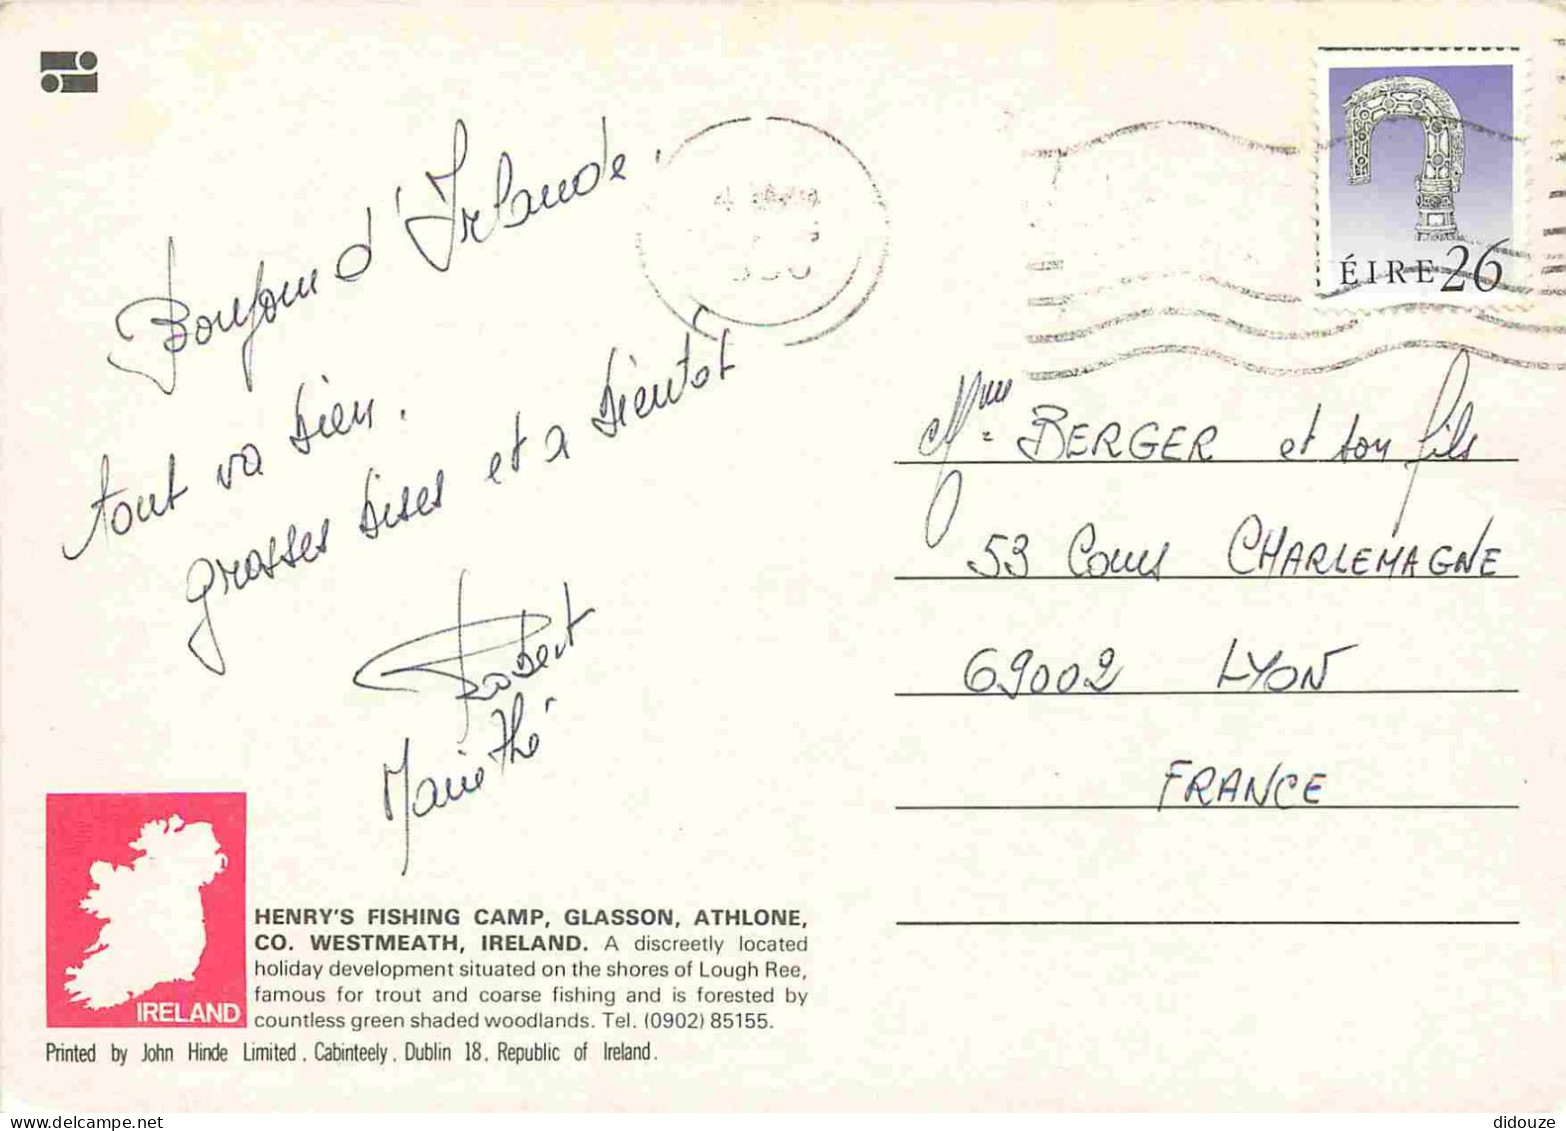 Bonjour d'Irlande.
tout va bien.
grosses bises et a bientôt
Robert
Marie Thé
ÉIRE 26
Mme BERGER et son fils
53 Cours CHARLEMAGNE
69002 LYON
FRANCE
IRELAND
HENRY'S FISHING CAMP, GLASSON, ATHLONE,
CO. WESTMEATH, IRELAND. A discreetly located
holiday development situated on the shores of Lough Ree,
famous for trout and coarse fishing and is forested by
countless green shaded woodlands. Tel. (0902) 85155.
Printed by John Hinde Limited, Cabinteely, Dublin 18, Republic of Ireland.
didouze